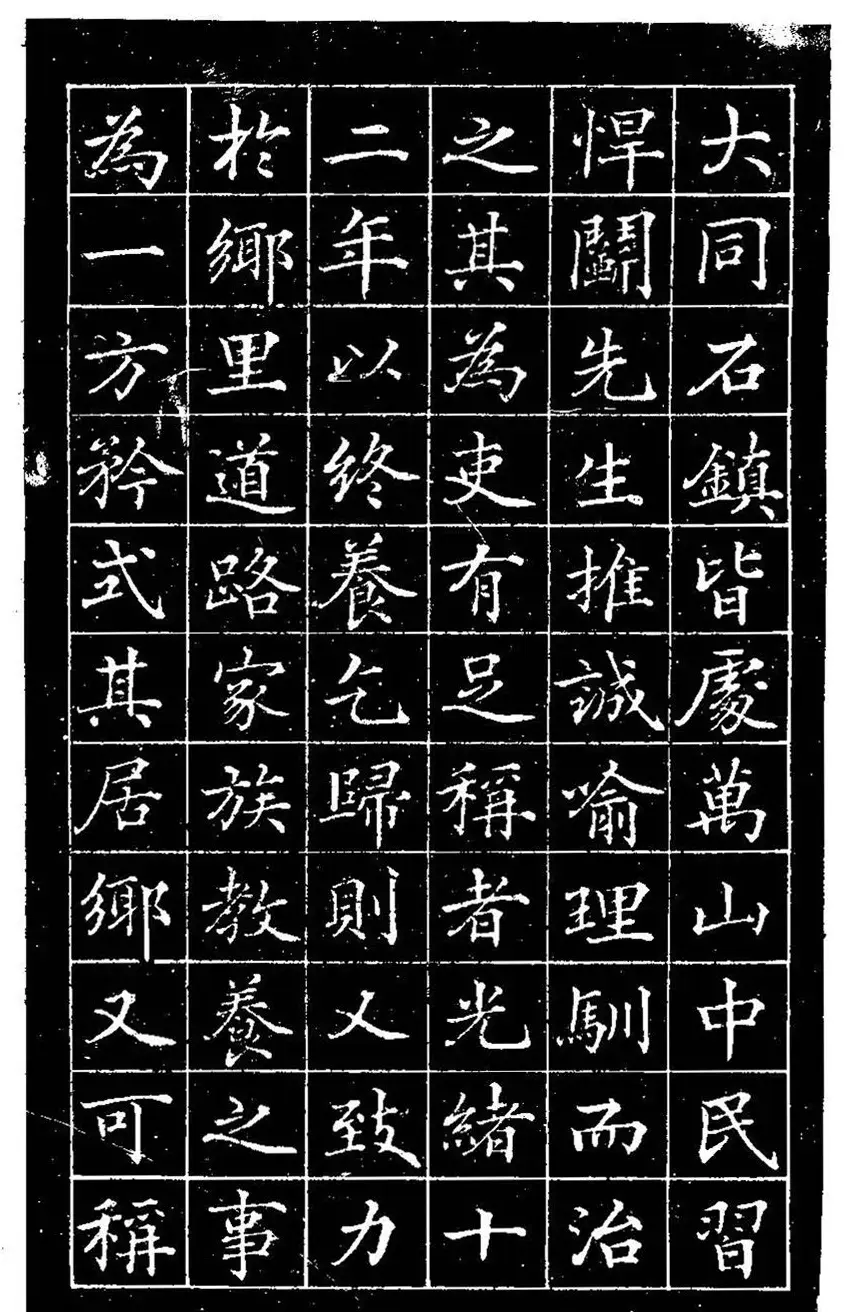 大同石鎮皆處萬山中民習
悍鬭先生推誠喻理馴而治
之其為吏有足稱者光緒十
二年以終養乞歸則又致力
於鄉里道路家族教養之事
為一方矜式其居鄉又可稱